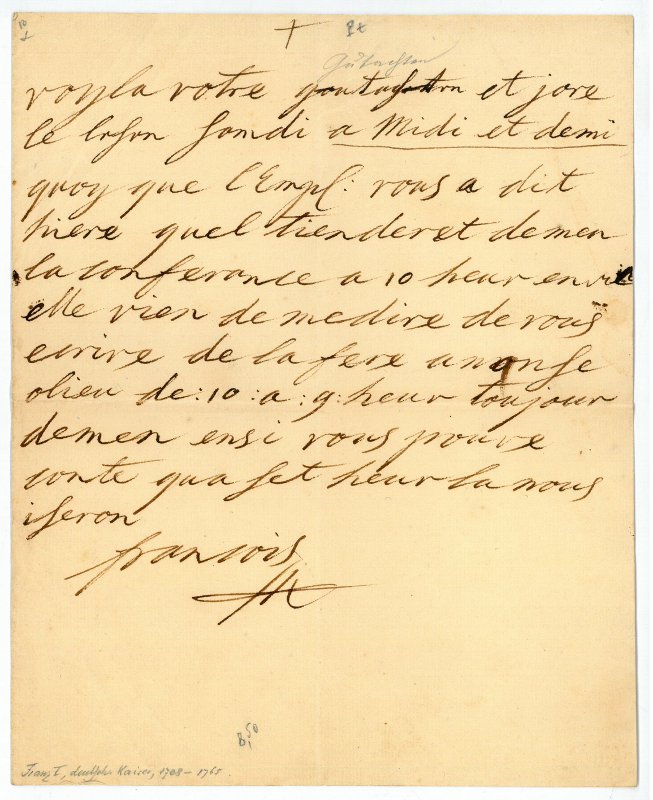 Gutachten
voyla votre goutachtrn et jore
le leson samdi a Midi et demi
quoy que l'Empl: vous a dit
hiere quel tienderet demen
la conferance a 10 heur
elle vien de me dire de vous
ecrire de la fere anonse
olieu de :10 : a : 9 : heur toujour
demen ensi vous pouve
conte qua set heur la nous
iseron
francois
Franz I, deutscher Kaiser, 1708 – 1765.